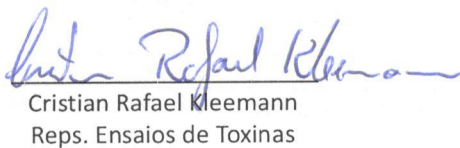 Cristian Rafael Kleemann
Cristian Rafael Kleemann
Reps. Ensaios de Toxinas